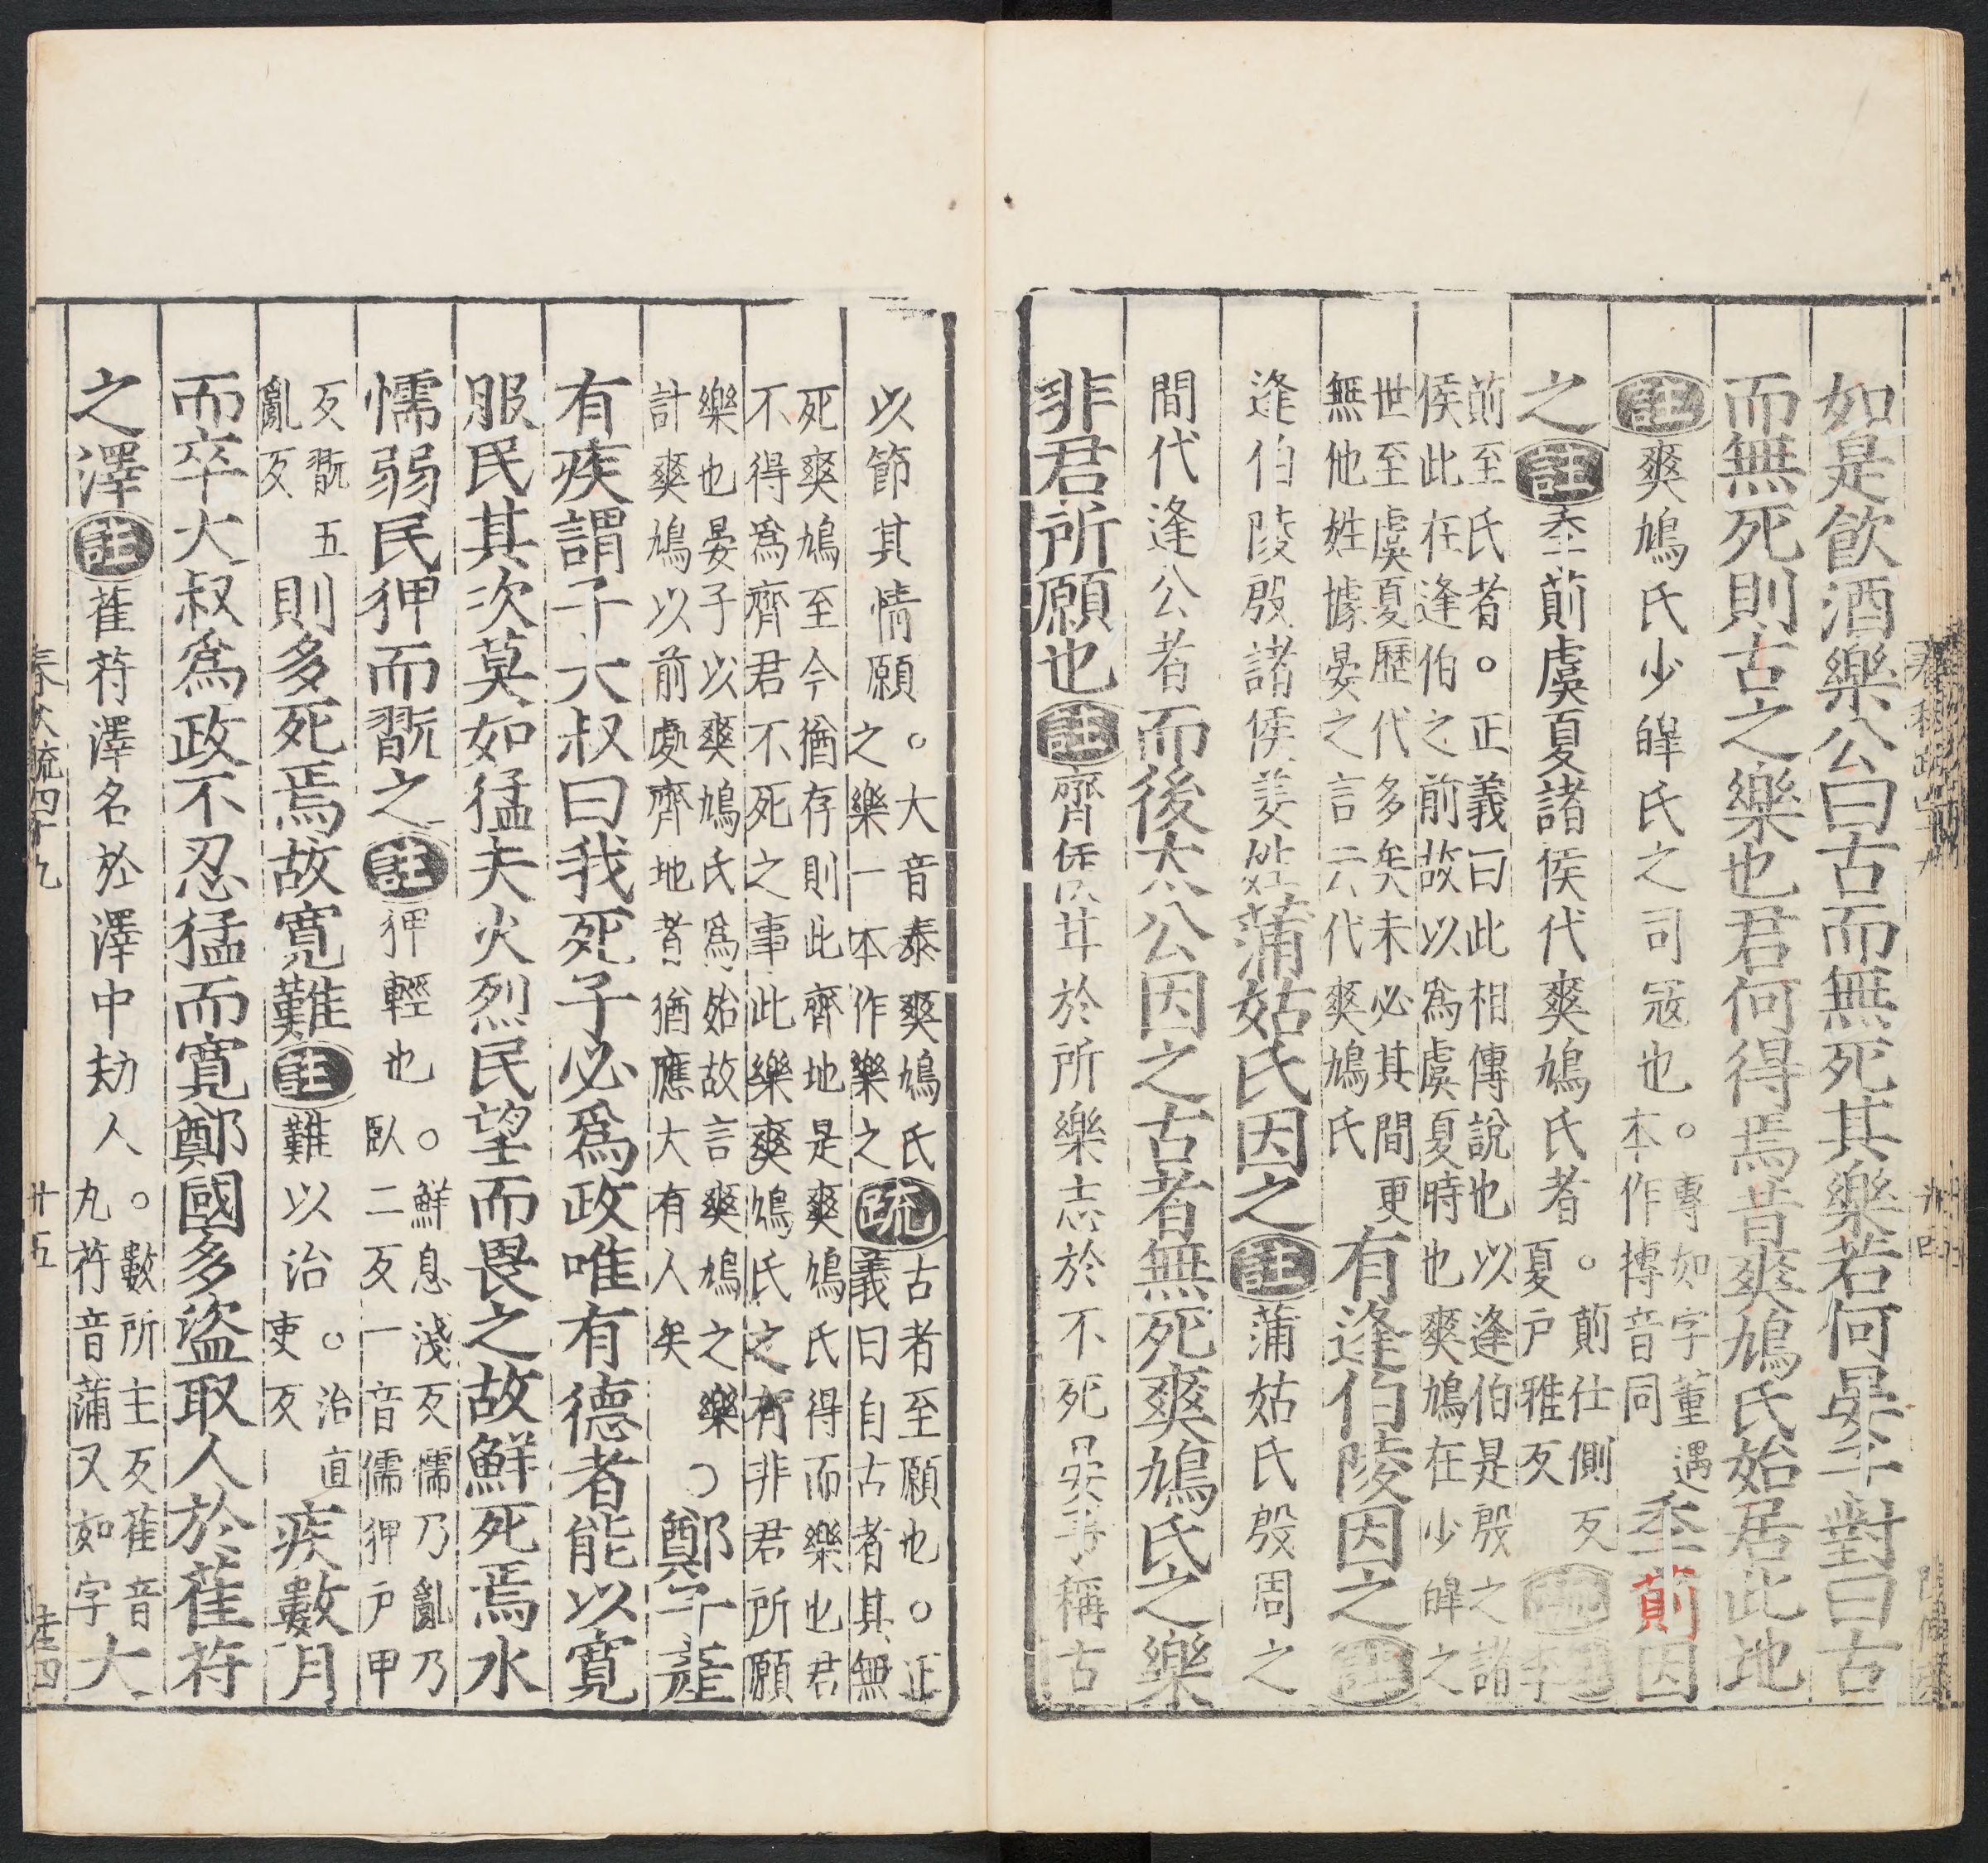 如是飲酒樂公曰古而無死其樂若何晏子對曰古
而無死則古之樂也君何得焉昔爽鳩氏始居此地
註爽鳩氏少皥氏之司寇也。專如字董遇本作摶音同季萴因
之註季萴虞夏諸侯代爽鳩氏者。萴仕側反夏戶雅反疏註季
萴至氏者。正義曰此相傳說也以逢伯是殷之諸
侯此在逢伯之前故以為虞夏時也爽鳩在少皥之
世至虞夏歷代多矣未必其間更
無他姓據晏之言云代爽鳩氏有逢伯陵因之註
逢伯陵殷諸侯姜姓蒲姑氏因之註蒲姑氏殷周之
間代逢公者而後大公因之古者無死爽鳩氏之樂
非君所願也註齊侯甘於所樂志於不死晏子稱古
以節其情願。大音泰爽鳩氏之樂一本作樂之疏古者至願也。正義曰自古者其無
死爽鳩至今猶存則此齊地是爽鳩氏得而樂也君
不得為齊君不死之事此樂爽鳩氏之有非君所願
樂也晏子以爽鳩氏為始故言爽鳩之樂
計爽鳩以前處齊地者猶應大有人矣○鄭子產
有疾謂子大叔曰我死子必為政唯有德者能以寬
服民其次莫如猛夫火烈民望而畏之故鮮死焉水
懦弱民狎而翫之註狎輕也。鮮息淺反懦乃亂乃臥二反一音儒狎戶甲
反翫五亂反則多死焉故寬難註難以治。治直吏反疾數月
而卒大叔為政不忍猛而寬鄭國多盜取人於萑苻
之澤註萑苻澤名於澤中劫人。數所主反萑音丸苻音蒲又如字大
春秋疏四十九
廿五